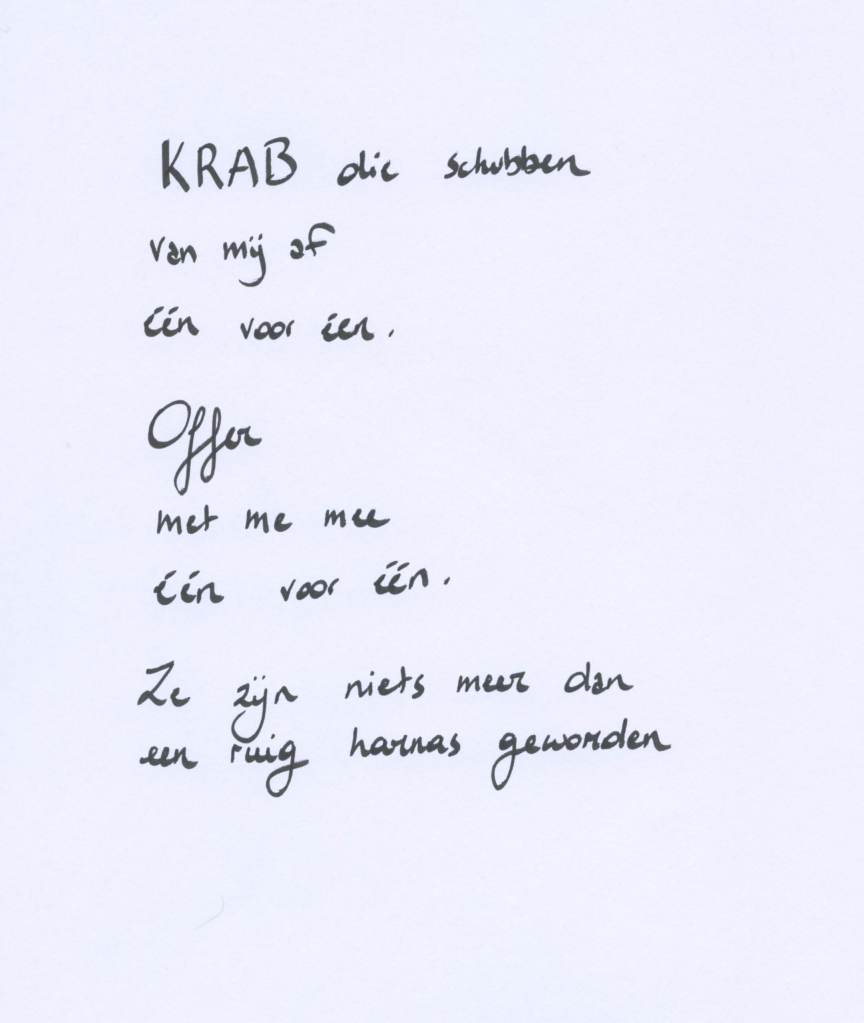 KRAB die schubben
van mij af
één voor één.
Offer
met me mee
één voor één.
Ze zijn niets meer dan
een ruig harnas geworden